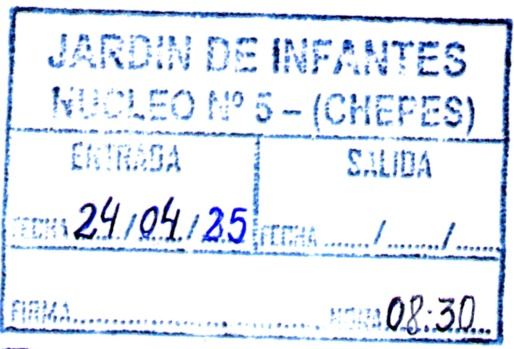 JARDIN DE INFANTES
NUCLEO Nº 5 – (CHEPES)
ENTRADA SALIDA
FECHA 24/04/25 FECHA ......./......./.......
FIRMA........................... HORA 08:30